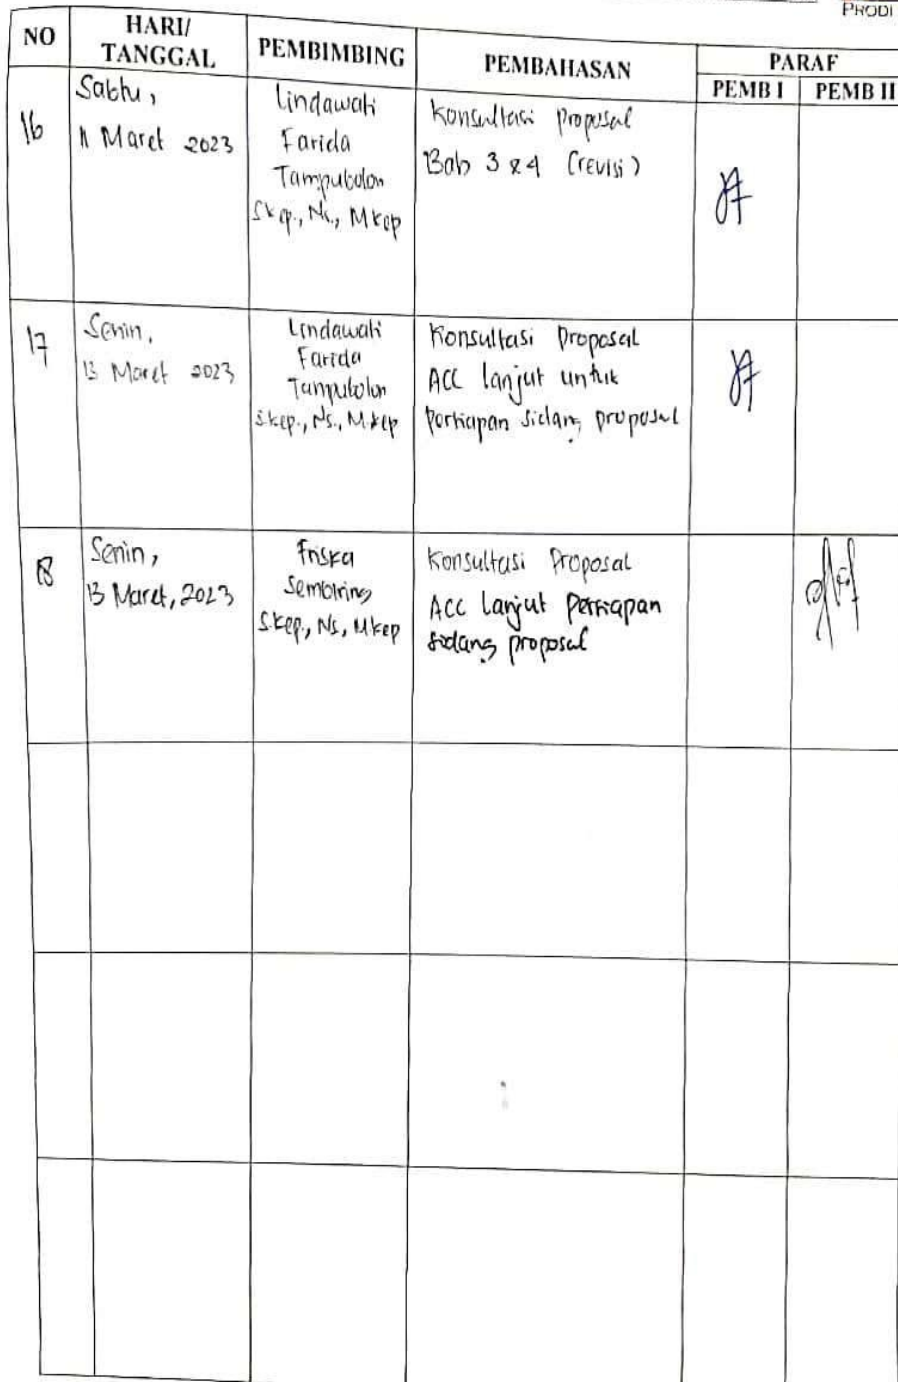 PRODI
NO
HARI/
TANGGAL
PEMBIMBING
PEMBAHASAN
PARAF
PEMB I
PEMB II
16
Sabtu,
11 Maret 2023
Lindawati
Farida
Tampubolon
Skep., Ns., Mkep
Konsultasi Proposal
Bab 3 & 4 (revisi)
17
Senin,
13 Maret 2023
Lindawati
Farida
Tampubolon
S.kep., Ns., M.kep
Konsultasi Proposal
ACC lanjut untuk
persiapan sidang proposal
18
Senin,
13 Maret, 2023
Friska
Sembiring
S.kep., Ns, Mkep
Konsultasi Proposal
ACC Lanjut Persiapan
sidang proposal